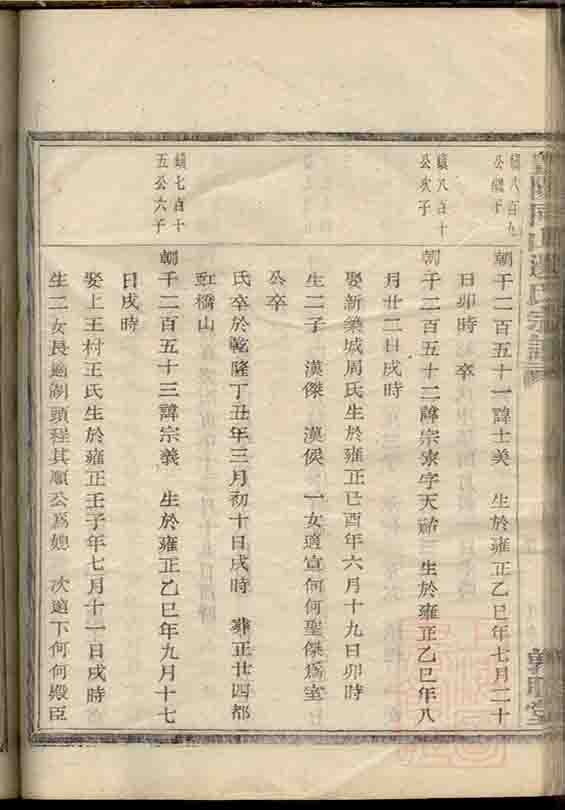 公繼子
朝千二百五十一諱士美 生於雍正乙巳年七月二十
日卯時 卒
鎮八百十
公次子
朝千二百五十二諱宗 字天 生於雍正乙巳年八
月廿二日戌時
娶新築城周氏生於雍正己酉年六月十九日卯時
生二子 漢傑 漢候 一女適宣何何聖傑為室
公卒
氏卒於乾隆丁丑年三月初十日戌時 葬正廿四都
虹橋山
鎮七百十
五公六子
朝千二百五十三諱宗義 生於雍正乙巳年九月十七
日戌時
娶上王村王氏生於雍正壬子年七月十一日戌時
生二女長適湖頭程其順公為媳 次適下何何殿臣